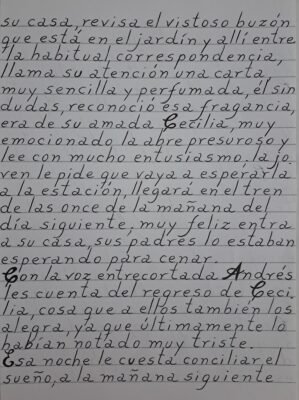 su casa, revisa el vistoso buzón
que está en el jardín y allí entre
la habitual correspondencia,
llama su atención una carta,
muy sencilla y perfumada, él sin
dudas, reconoció esa fragancia,
era de su amada Cecilia, muy
emocionado la abre presuroso y
lee con mucho entusiasmo, la jo-
ven le pide que vaya a esperarla
a la estación, llegará en el tren
de las once de la mañana del
día siguiente, muy feliz entra
a su casa, sus padres lo estaban
esperando para cenar.
Con la voz entrecortada Andrés
les cuenta del regreso de Ceci-
lia, cosa que a ellos también los
alegra, ya que últimamente lo
habían notado muy triste.
Esa noche le cuesta conciliar el
sueño, a la mañana siguiente